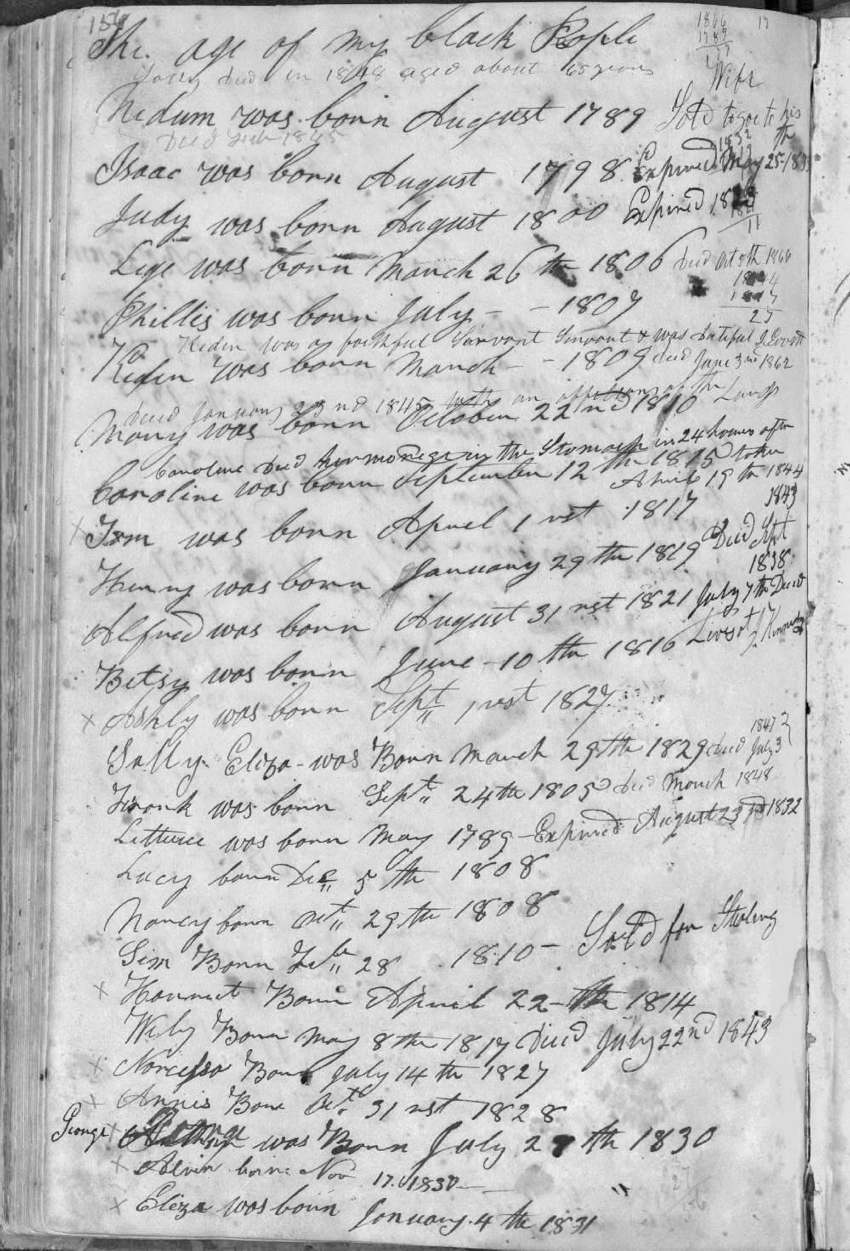 156
The age of my black People
died in 1848 aged about 65 years
1866
Wife
Nedum was born August 1789 Sold to go to his
Died Feb 1845
Isaac was born August 1798. Expired May 25-183
Judy was born August 1800 Expired
11
Lige was born March 26th 1806 died Oct 5th 1866
Phillis was born July - - 1807
25
Keden was a faithful Servant & was
Keden was born March - - 1809 died June 3rd 1862
died January 23nd 1845 with an of the Lungs
Mary was born October 22nd 1810
Caroline died in the Stomach in 24 hours after
Caroline was born September 12th 1815 taken
April 19th 1844
x Tom was born Aprel 1nst 1817
1843
Henry was born January 29th 1819 Died Sept
1838
Alfred was born August 31nst 1821 July 7th Died
Betsy was born June - 10th 1816 Lives at
x Ashly was born Sept 1nst 1827
1847
Sally Eliza - was Born March 29th 1829 died July 3
Frank was born Sept 24th 1805 died March 1848
Lettuce was born May 1789 - Expired August 23rd 1832
Lucy born Dec 5th 1808
Nancy born Oct 29th 1808
Sim Born Feb 28 1810 - Sold for Stealing
x Harriet Born April 22-th 1814
Wily Born May 8th 1817 Died July 22nd 1843
x Narcissa Born July 14th 1827
x Annis Born Oct 31nst 1828
George x was Born July 27th 1830
x Alvin born Nov 17. 1830
x Eliza was born January 4th 1831